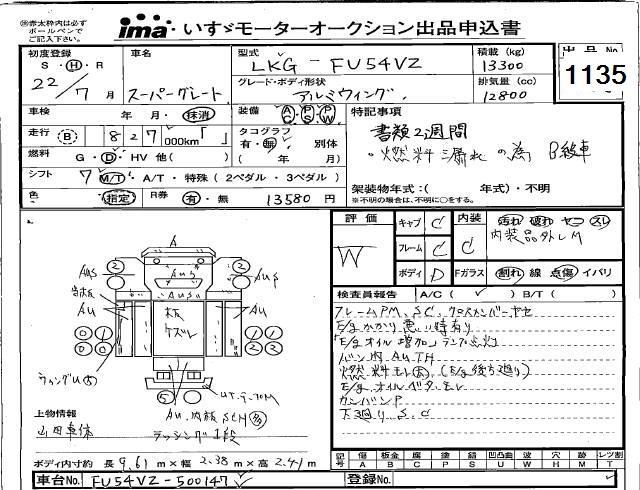 ㊟赤太枠内は必ず
ボールペンで
ご記入下さい。
ima いすゞモーターオークション出品申込書
初度登録 車名 型式 積載 (kg) 出品No.
S・H・R スーパーグレート LKG - FU54VZ 13300
22/7月 グレード・ボディ形状 排気量 (cc) 1135
アルミウィング 12800
車検 年・月・抹消 装備 AC PS PW 特記事項
走行 B 827,000km「 」 タコグラフ 書類2週間
有・無 別体
燃料 G・D・HV 他( ) ( 年 月) ・燃料漏れの為 B級車
シフト 7 M/T・A/T・特殊(2ペダル・3ペダル) 架装物年式:( 年式)・不明
色 指定 R券 有・無 13580円 ※不明の場合は、不明に○をする。
評価 キャブ C 内装 汚れ 破れ ヤニ スレ
W フレーム C C 内装品外しM
ボディ D Fガラス 割れ 線 点傷 イバリ
検査員報告 A/C( ) B/T( )
フレームPM、S、C、クロスメンバーヤセ
E/gかかり悪い時有り
「E/gオイル増加」ランプ点灯
バン内 AuTH
燃料モレ(大)(E/g後方廻り)
E/gオイルベタ、モレ
カンバンP
下廻りS、C
A
Aus
Aus
Au
Au
ウィングU
上物情報
山田車体 ラッシング1段
ボディ内寸約 長 9.61 m×幅 2.38 m×高 2.41 m
記号 傷 板金 腐 塗 錆 凹凸曲 波 穴 跡 レツ割
A B C P S U W H M T
車台No. FU54VZ-500147 登録No.